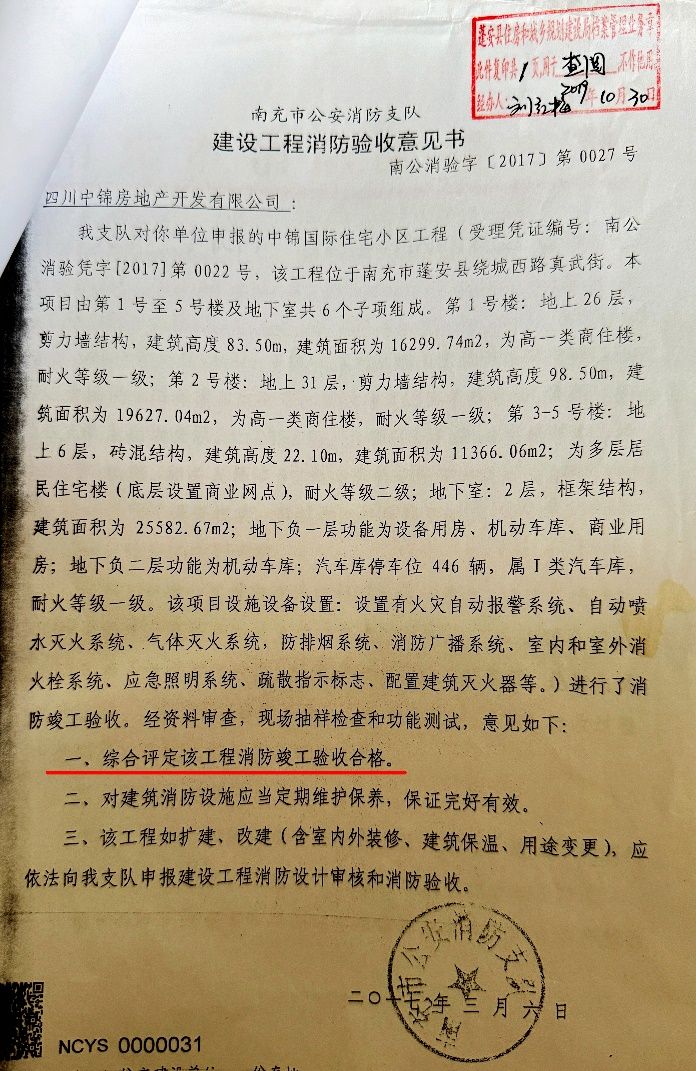 蓬安县住房和城乡规划建设局档案管理业务章
此件复印共1页,用于查阅 不作他用
经办人: 2019年10月30日
南充市公安消防支队
建设工程消防验收意见书
南公消验字〔2017〕第0027号
四川中锦房地产开发有限公司:
我支队对你单位申报的中锦国际住宅小区工程(受理凭证编号:南公
消验凭字[2017]第0022号,该工程位于南充市蓬安县绕城西路真武街。本
项目由第1号至5号楼及地下室共6个子项组成。第1号楼:地上26层,
剪力墙结构,建筑高度83.50m,建筑面积为16299.74m2,为高一类商住楼,
耐火等级一级;第2号楼:地上31层,剪力墙结构,建筑高度98.50m,建
筑面积为19627.04m2,为高一类商住楼,耐火等级一级;第3-5号楼:地
上6层,砖混结构,建筑高度22.10m,建筑面积为11366.06m2;为多层居
民住宅楼(底层设置商业网点),耐火等级二级;地下室:2层,框架结构,
建筑面积为25582.67m2;地下负一层功能为设备用房、机动车库、商业用
房;地下负二层功能为机动车库;汽车库停车位446辆,属I类汽车库,
耐火等级一级。该项目设施设备设置:设置有火灾自动报警系统、自动喷
水灭火系统、气体灭火系统,防排烟系统、消防广播系统、室内和室外消
火栓系统、应急照明系统、疏散指示标志、配置建筑灭火器等。)进行了消
防竣工验收。经资料审查,现场抽样检查和功能测试,意见如下:
一、综合评定该工程消防竣工验收合格。
二、对建筑消防设施应当定期维护保养,保证完好有效。
三、该工程如扩建、改建(含室内外装修、建筑保温、用途变更),应
依法向我支队申报建设工程消防设计审核和消防验收。
南充市公安消防支队
二〇一七年三月六日
NCYS 0000031